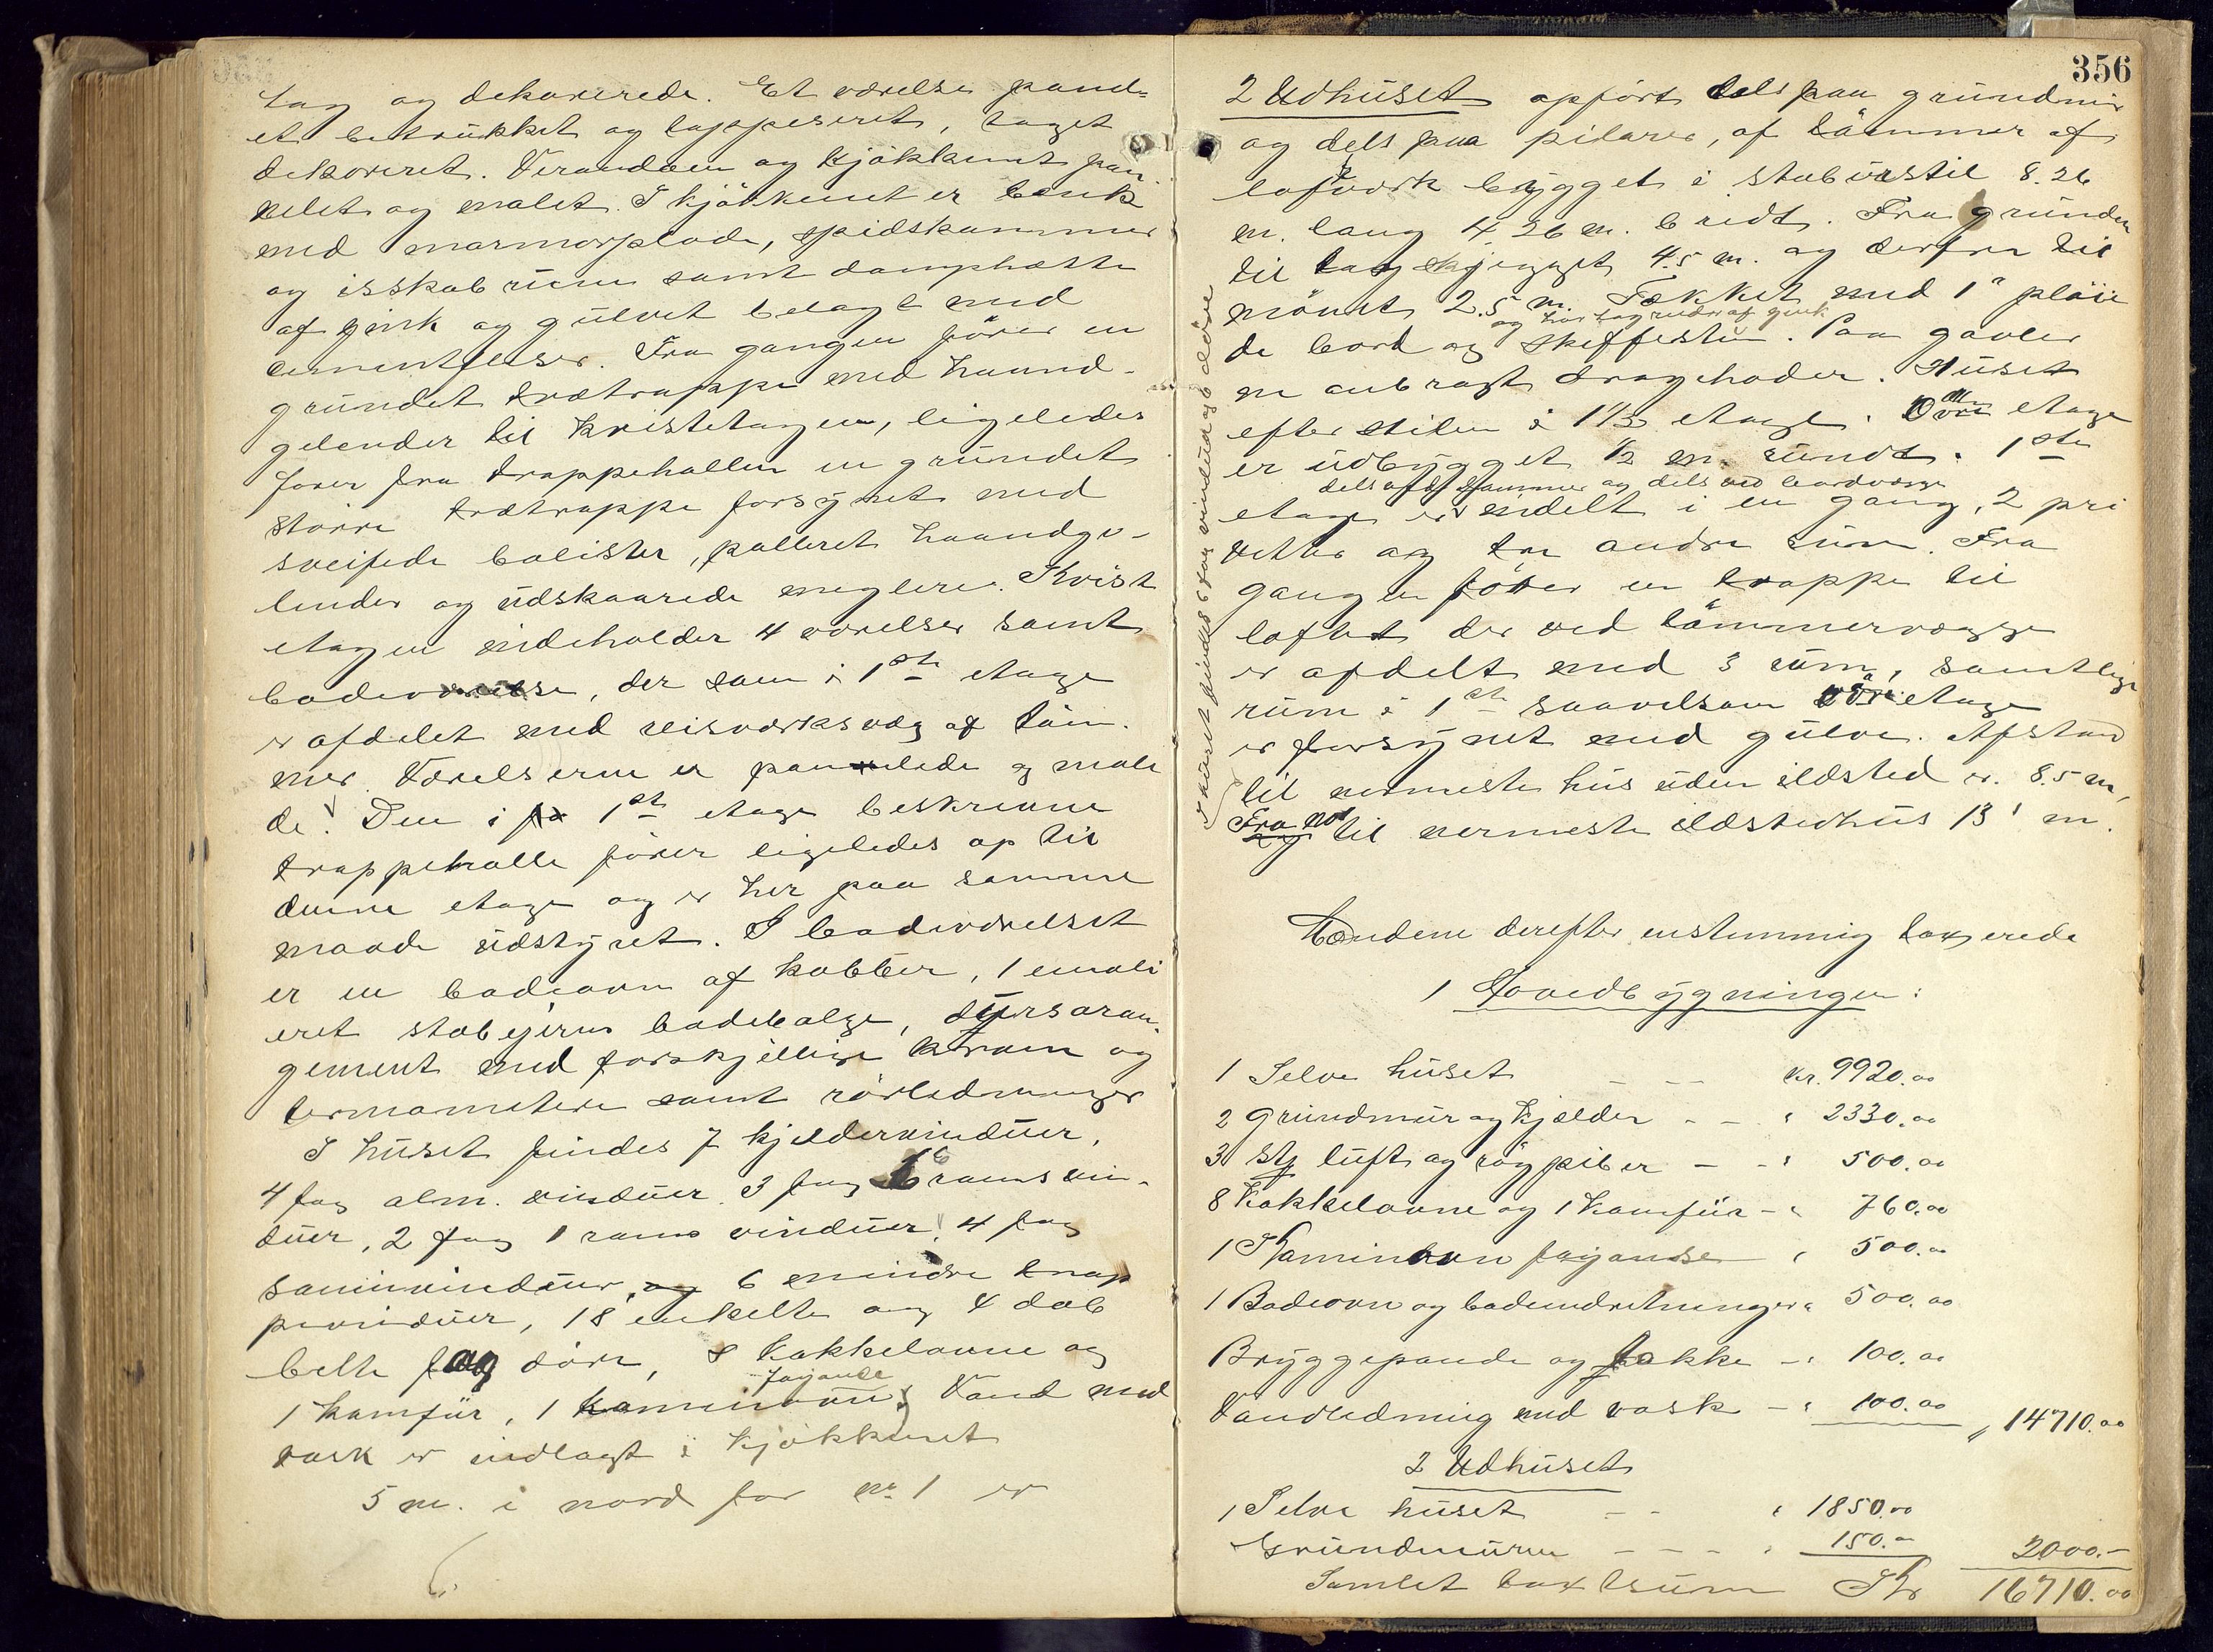 tag og dekorerede. Et værelse pand=
et betrukket og tappeseret, taget
dekoreret. Verandaen og kjøkkenet pan
nelet og malet. I kjøkkenet er bænk
med marmorplade, spidskammer
og isskab rum samt damphætte
af zink og gulvet belagt med
cementfliser. Fra gangen fører en
grundet trætrappe med haand-
gelender til kvistetagen, ligeledes
fører fra trappehallen en grundet
større trætrappe forsynet med
sveifede balister, polleret haandge-
lender og udskaarede meglere. Kvist
etagen indeholder 4 værelser samt
badeværelse, der som i 1ste etage
er afdelet med reisværksvæg af tøm.
mer. Værelserne er pannelede og male
de. Den i 1st etage beskrevne
trappehalle fører ligeledes op til
denne etage og er her paa samme
maade udstyret. I badeværelset
er en badeovn af kobber, 1 emali
eret støbejerns badebalge, dysaran-
gement med forskjellige kraner og
termometere samt rørledninger
I huset findes 7 kjeldervinduer,
4 fag alm. vinduer 3 fag 6 rams vin-
duer, 2 fag 1 rams vinduer, 4 fag
vinduer, og 6 mindre knap
pevinduer, 18 enkelte og 4 dob
belte fag døre, 8 kakkelovne og
fajance
1 komfür, 1 kaminovn, Vand med
vask er indlagt i kjøkkenet
5 m. i nord for no 1 er
356
2 Udhuset opført dels paa grundmur
og dels paa pilarer, af tømmer af
loftverk bygget i stabursstil 8.26
m. lang 4.26 m. bredt. Fra grunden
til tagskjegget 4.5 m. og derfra til
mønet 2.5 m. Tækket med 1" pløie
og har tagrender af zink
de bord og skiffersten. Paa gavler
ne anbragt dragehoder. Huset
efter stilen i 1 1/2 etage. Øvre etage
er udbygget 1/2 m. rundt. 1ste
dels ved tømmer og dels ved bordvægge
etage er indelt i en gang, 2 pri
vetter og tre andre rum. Fra
gangen fører en trappe til
loftet der ved tømmervægge
er afdelt med 3 rum, samtlige
rum i 1ste saavelsom øvre etage
er forsynet med gulve. Afstand
til nermeste hus uden ildsted er 8.5 m,
Fra no til nermeste ildstedhus 13 m.
I huset findes 6 fag vinduer og 6 døre
Mændene derefter enstemmig taxerede
1 Hovedbygningen:
1 Selve huset - - - kr. 9920.00
2 Grundmur og kjelder - - " 2330.00
3 stk luft og røg piber - - " 500.00
8 Kakkelovne og 1 komfür - " 760.00
1 Kaminovn fajanse " 500.00
1 Badeovn og badeindretninger " 500.00
Bryggepande og bakke - " 100.00
Vandledning med vask - " 100.00 " 14710.00
2 Udhuset
1 Selve huset - - " 1850.00
Grundmuren - - - " 150.- 2000.-
Samlet taxtsum Kr 16710.00